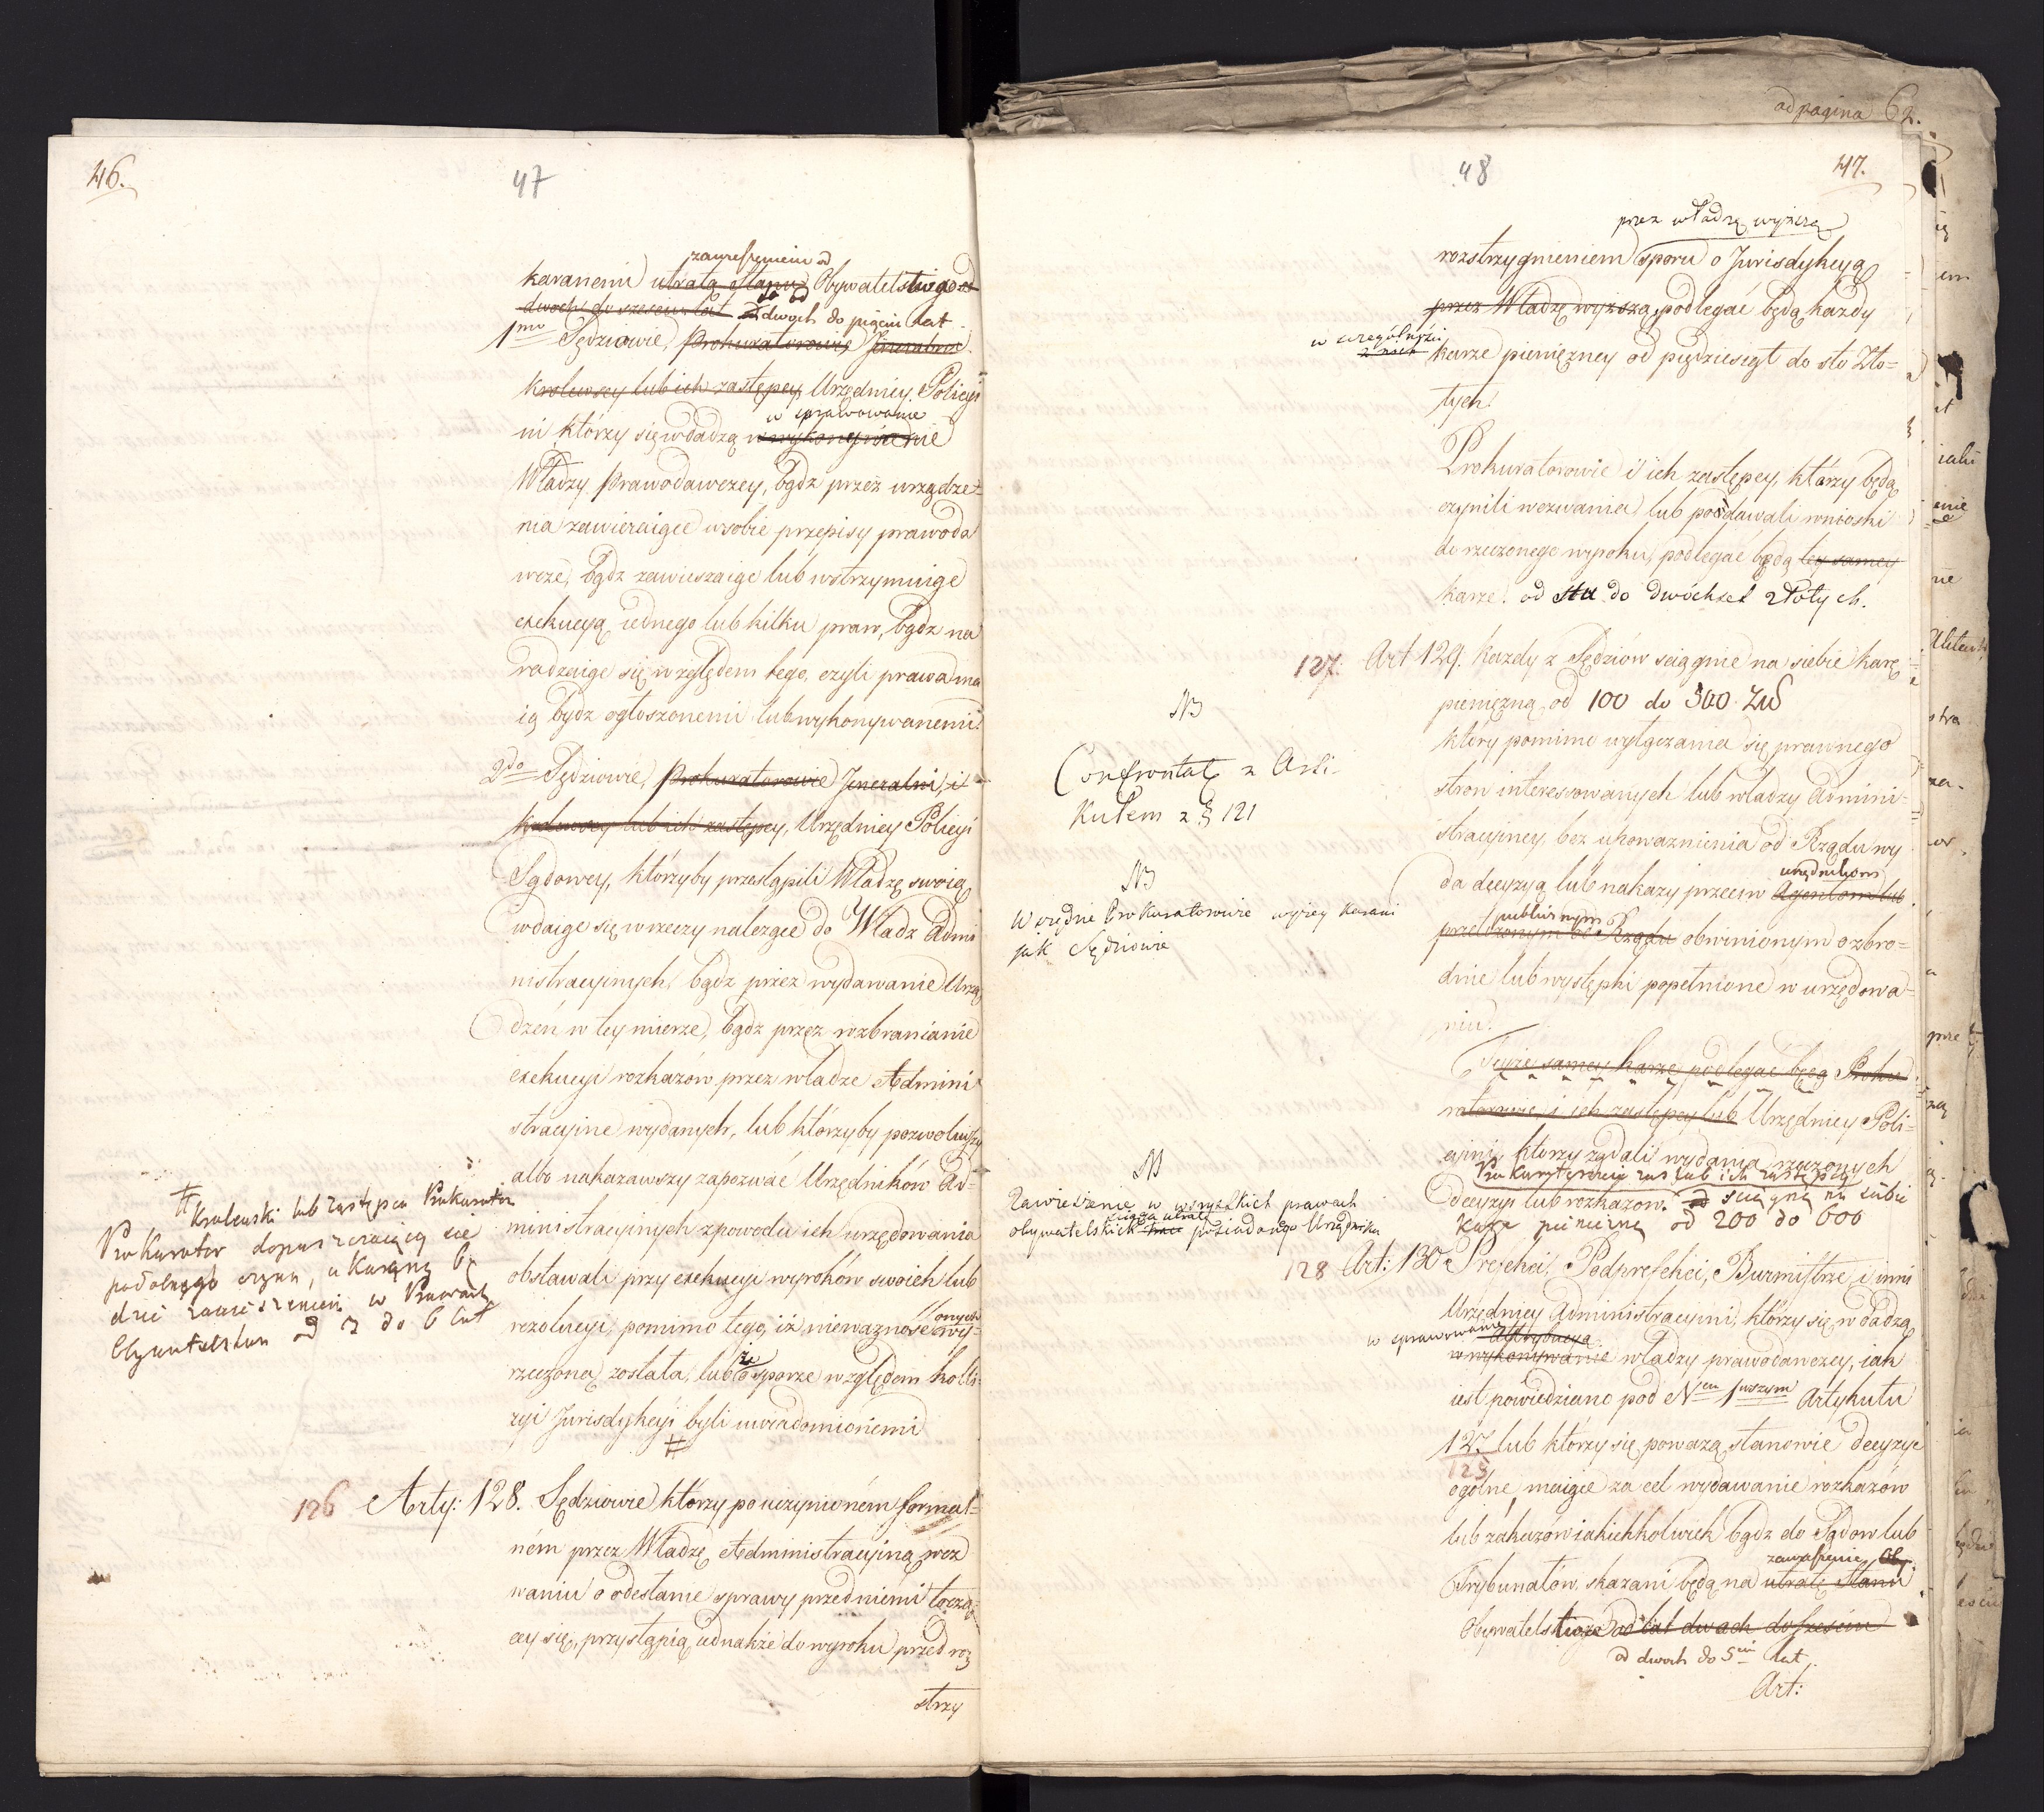 46.
47
zawieszeniem od
karanemi utratą Stanu Obywatelskiego od
dwoch do szesciu lat od dwoch do pięciu lat
1mo Sędziowie, Prokuratorowie Jeneralni
Krolewscy lub ich zastępcy, Urzędnicy Policyi
w sprawowanie
ni którzy się wdadzą w wykonywanie
Władzy Prawodawczey, bądz przez urządze-
nia zawieraiące w sobie przepisy prawoda
wcze, bądz zawieszaiąc lub wstrzymuiąc
exekucyą iednego lub kilku praw, bądz na
radzaiąc się względem tego, czyli prawa ma
ią bydz ogłoszonemi lub wykonywanemi.
2do Sędziowie, Prokuratorowie Jeneralni, i
Krolewscy lub ich zastępcy, Urzędnicy Policyi
Sądowey, którzyby przestąpili Władzę swoią
wdaiąc się w rzeczy należące do Władz Admi
nistracyinych, bądz przez wydawanie Urzą
dzeń w tey mierze, bądz przez rozbranianie
exekucyi rozkazów przez władze Admini
stracyine wydanych, lub którzyby pozwoliwszy
albo nakazawszy zapozwać Urzędników Ad-
ministracyinych z powodu ich urzędowania
obstawali przy exekucyi wyroków swoich lub
onych
rezolucyi, pomimo tego, iż nieważność wy-
rzeczoną została, lub że o sporze względem kolli-
zyi Jurisdykcyi byli uwiadomionemi
#
# Krolewski lub zastępca Prokurator
Prokurator dopuszczaiący się
podobnego czynu, ukarany bę
dzie zawieszeniem w Prawach
Obywatelskich od 2 do 6 lat
126 Arty: 128. Sędziowie którzy po uczynioném formal-
ném przez Władzę Administracyiną wez
waniu o odesłanie sprawy przed niemi toczą-
cey się, przystąpią iednakże do wyroku przed roz
strzy
od pagina 62.
48
47.
przez władzę wyższą
rozstrzygnieniem sporu o Jurisdykcyą
przez Władzę wyższą, podlegać będą każdy
w szczególności
z nich karze pieniężney od pięćdziesiąt do sto Zło-
tych.
Prokuratorowie i ich zastępcy, którzy będą
czynili wezwania lub podawali wnioski
do rzeczonego wyroku, podlegać będą tey samey
karze od stu do dwóchset złotych.
127. Art 129. Każdy z Sędziów sciągnie na siebie karę
pieniężną od 100 do 500 Zł
który pomimo wyłączania się prawnego
stron interessowanych lub władzy Admini-
stracyiney, bez upoważnienia od Rządu wy
urzędnikom
da decyzyą lub nakazy przeciw Agentom lub
publicznym
przełożonym od Rządu obwinionym o zbro-
dnie lub występki popełnione w urzędowa-
niu.
Teyże samey karze podlegać będą Proku
ratorowie, i ich zastępcy lub Urzędnicy Poli-
cyini którzy żądali wydania rzeczonych
Prokuratorowie zas lub ich zastępcy
decyzyi lub rozkazow. sciągną na siebie
karę pieniężną od 200 do 600
NB
Confrontatę z Arti-
kułem z § 121
NB
Wzdnie Prokuratorowie wyżey karani
jak Sędziowie
NB
Zawieszenie w wszystkich prawach
ciąga utratę
obywatelskich posiadanego Urzędnika
128 Art: 130 Prefekci, Podprefekci, Burmistrze, i inni
Urzędnicy Administracyini, którzy się wdadzą
w sprawowanie Attrybucyą
w wykonywanie władzy prawodawczey, iak
iest powiedziano pod Nem 1wszym Artykułu
127 lub którzy się poważą stanowić decyzye
125
ogólne, maiące za cel wydawanie rozkazów
lub zakazów iakichkolwiek bądz do Sądow lub
zawieszenie Oby
Trybunałów, skazani będą na utratę Stanu
Obywatelskiego od lat dwoch do szesciu
od dwoch do 5ciu lat.
Art: